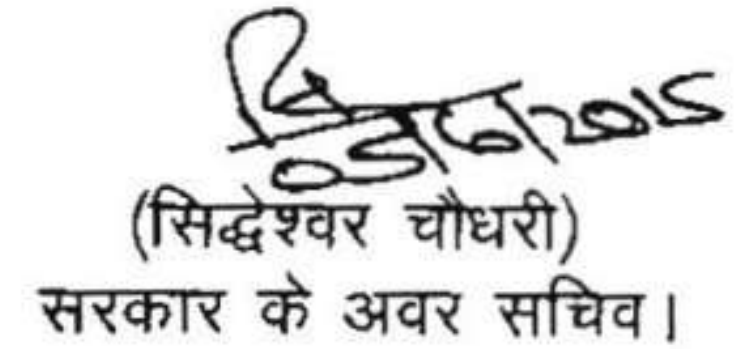 05/6/2015
(सिद्धेश्वर चौधरी)
सरकार के अवर सचिव।